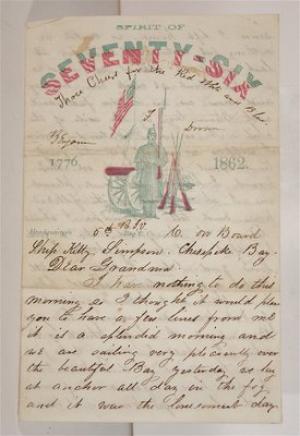 SPIRIT OF
SEVENTY-SIX
Three Cheers for the Red White and Blue.
1776. 1862.
5th N.Y. on Board
Ship Kitty Simpson - Chesepeke Bay -
Dear Grandma
I have nothing to do this
morning so I thought it would please
you to have a few lines from me
it is a splendid morning and
we are sailing very plesently over
the beautiful Bay yesterday we lay
at anchor all day in the fog
and it was the lonesomest day